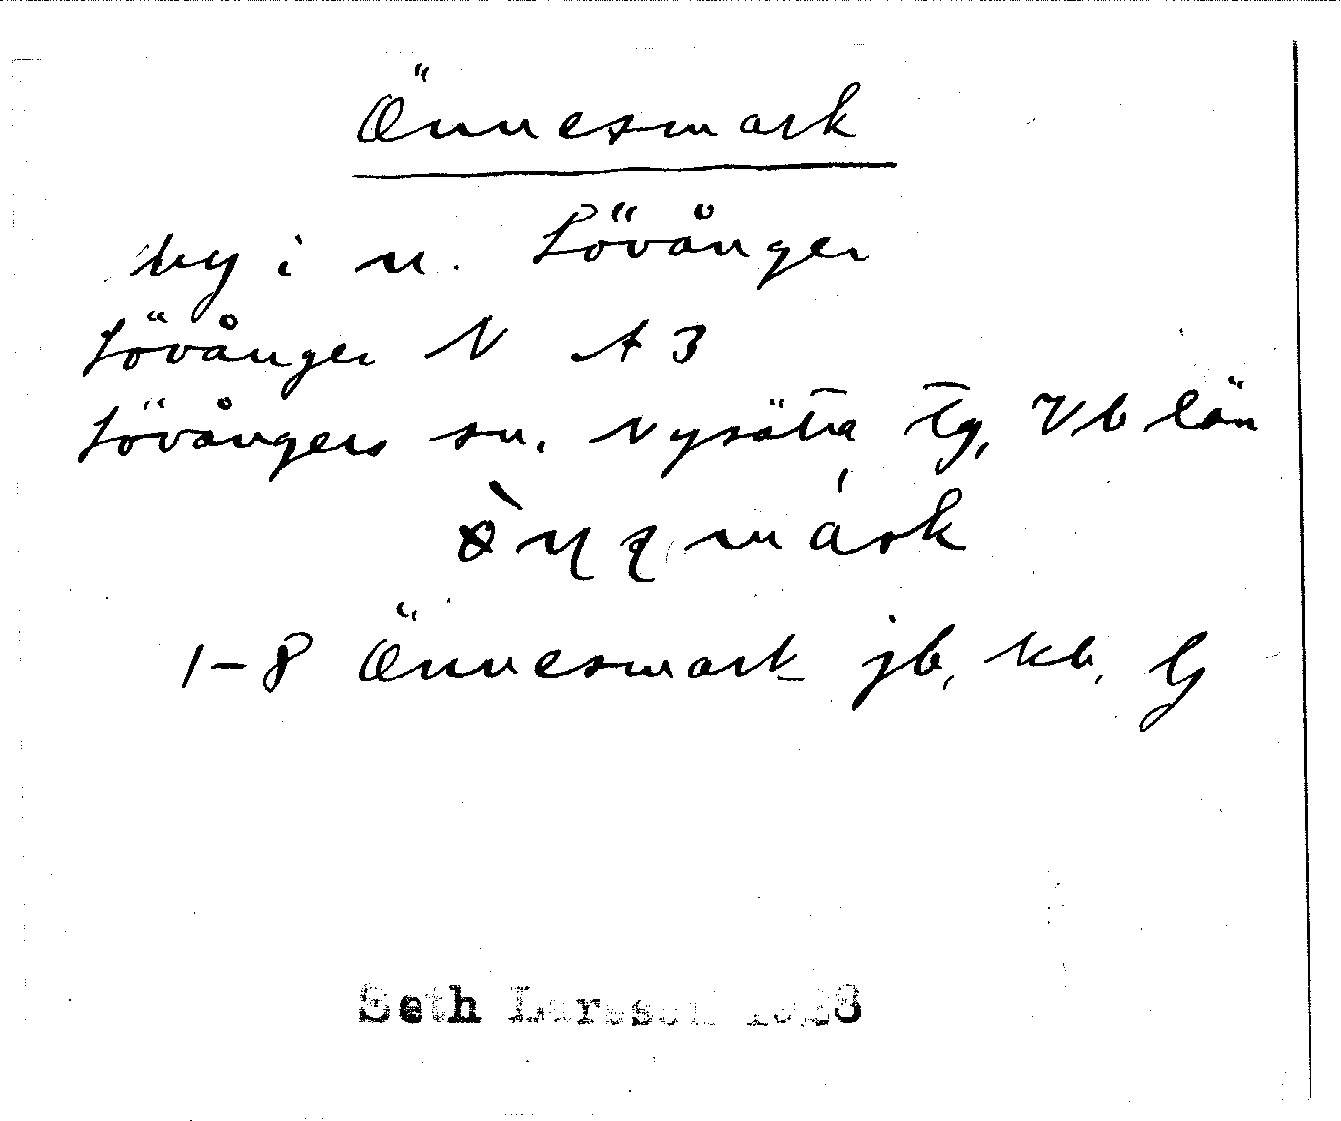 Önnesmark
by i n. Lövånger
Lövånger N A 3
Lövångers sn. Nysätra tg, Vb län
1-8 Önnesmark jb, kb, Gj
Seth Larsson